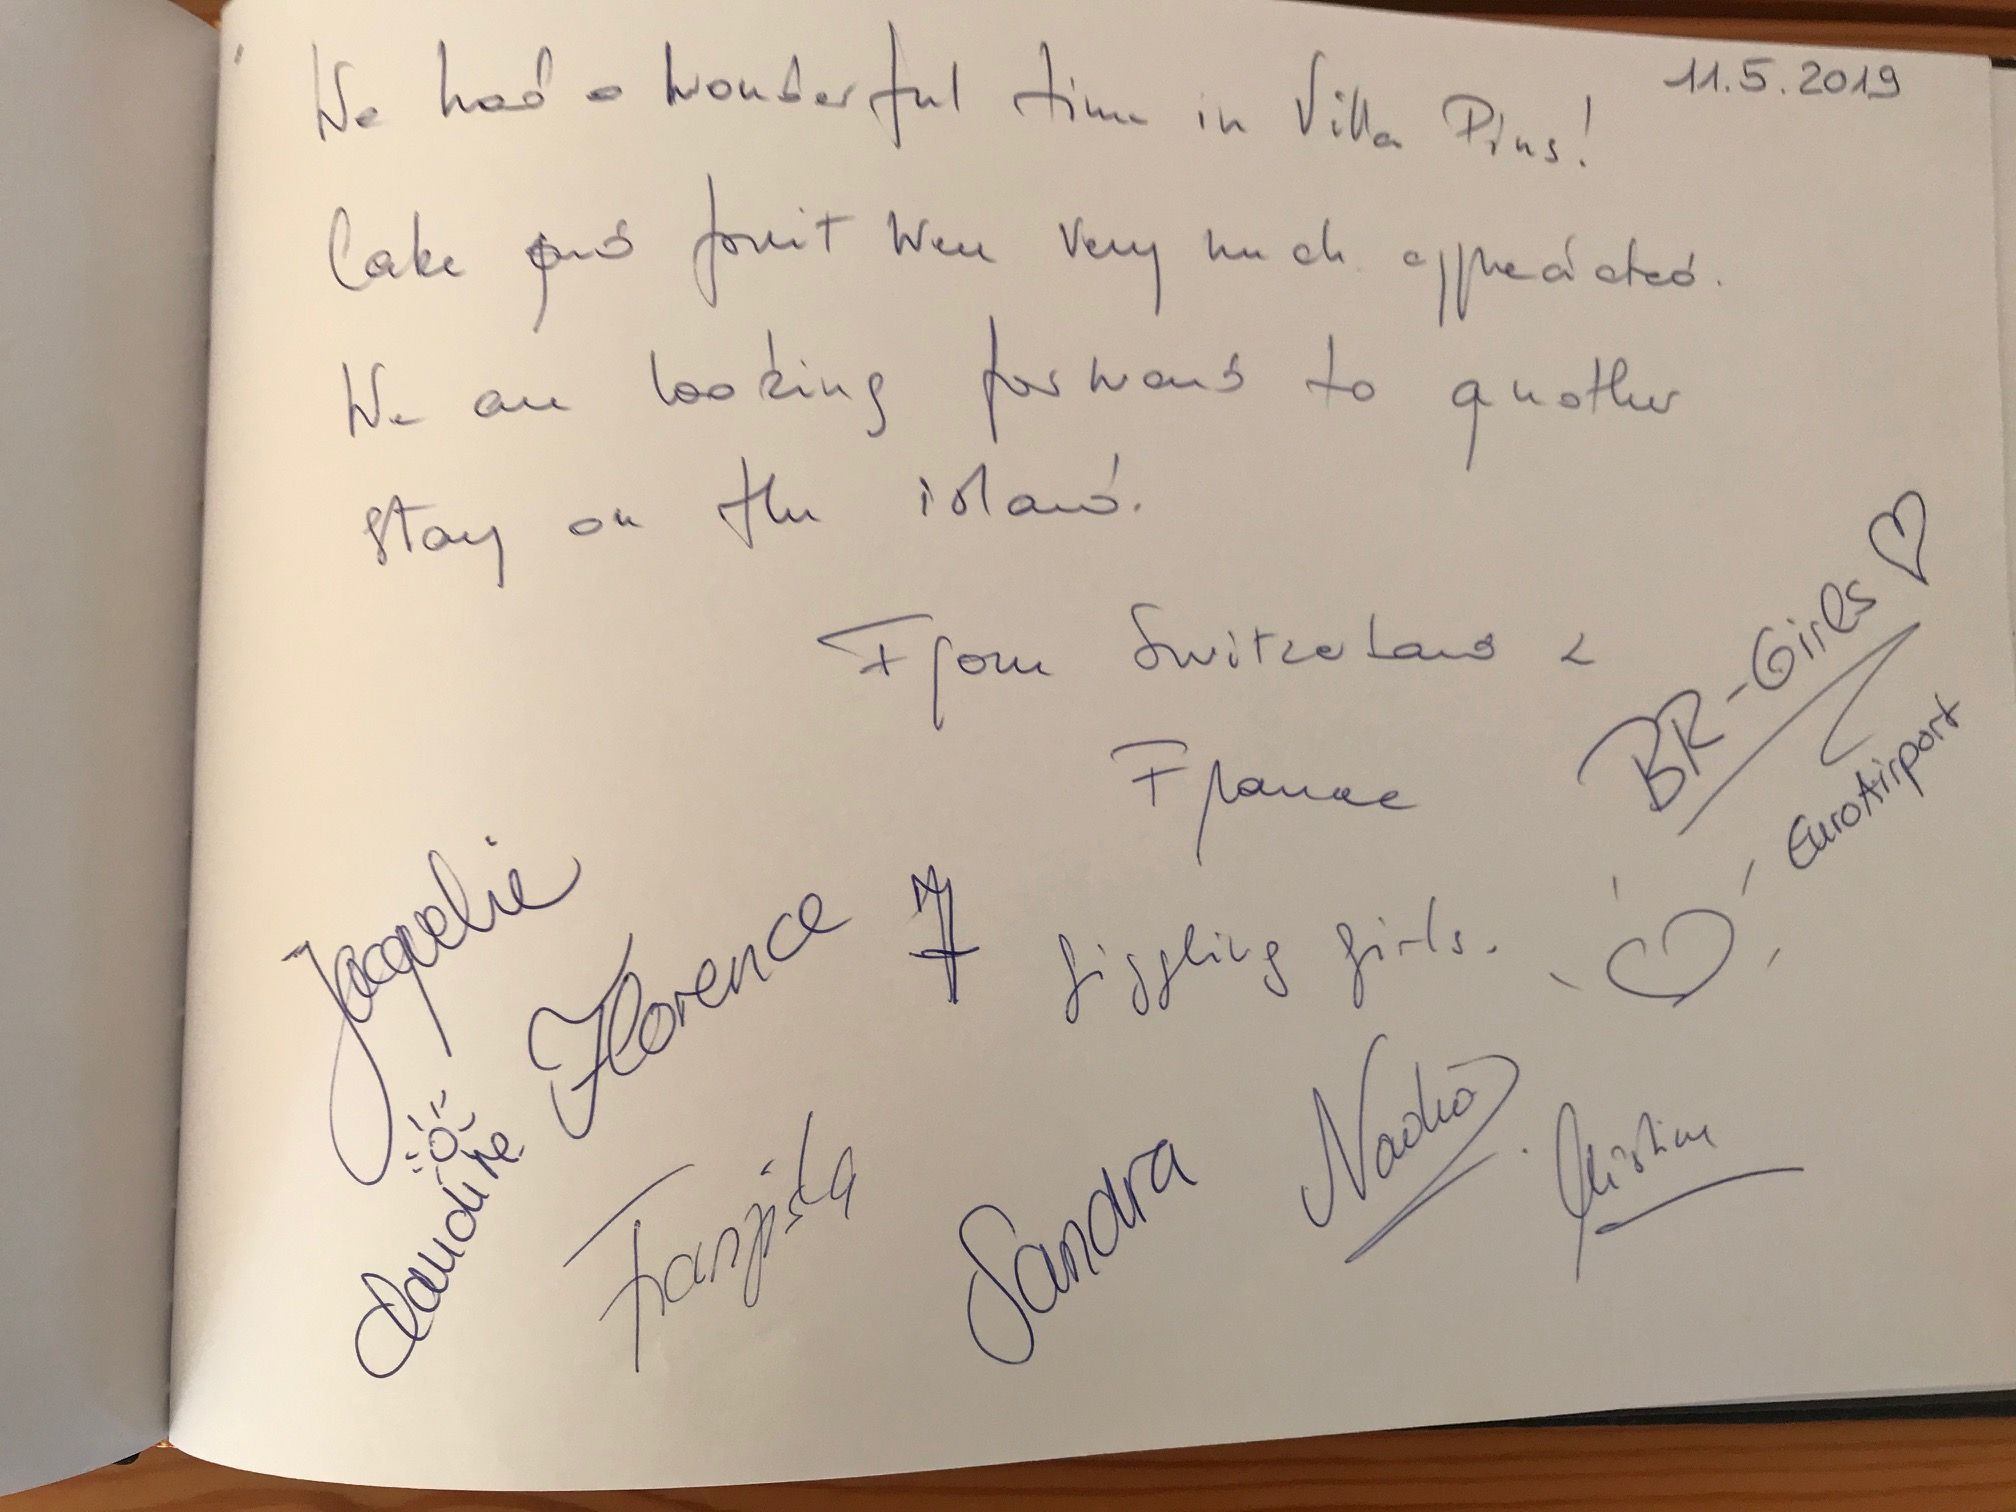 11.5.2019
We had a wonderful time in Villa Pins!
Cake and fruit were very much appreciated.
We are looking forward to another
stay on the island.
From Switzerland &
France
BR-Girls ♡
EuroAirport
7 giggling girls. ♡
Jacqueline
Florence
Claudine
Franziska
Sandra
Christine